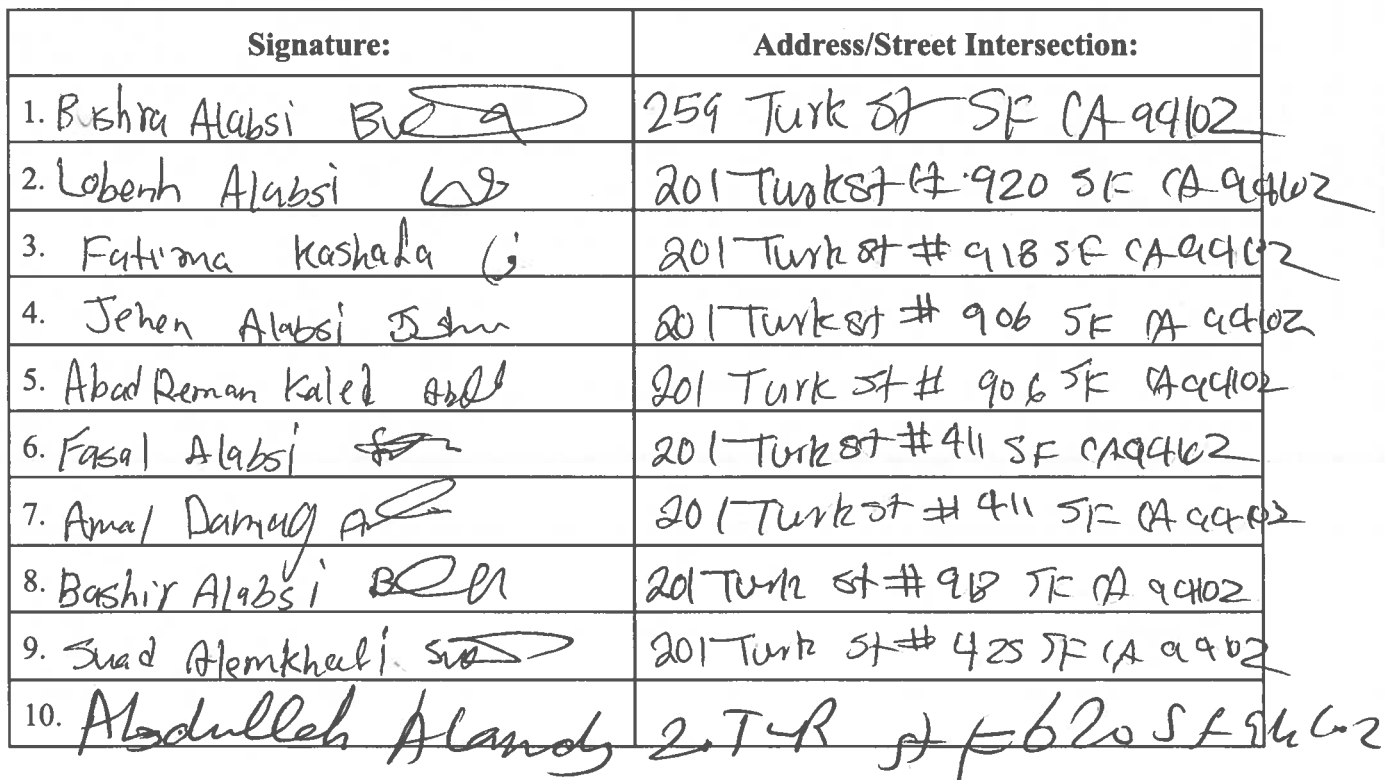 Signature: Address/Street Intersection:
1. Bushra Alabsi 259 Turk St SF CA 94102
2. Lobenh Alabsi 201 Turk st # 920 SF CA 94102
3. Fatima Kashada 201 Turk st # 918 SF CA 94102
4. Jehen Alabsi 201 Turk st # 906 SF CA 94102
5. Abad Reman Kaled 201 Turk St # 906 SF CA 94102
6. Fasal Alabsi 201 Turk st # 411 SF CA 94102
7. Amal Damag 201 Turk st # 411 SF CA 94102
8. Bashir Alabsi 201 Turk st # 918 SF CA 94102
9. Suad 201 Turk st # 425 SF CA 94102
10. Abdullah st 620 SF